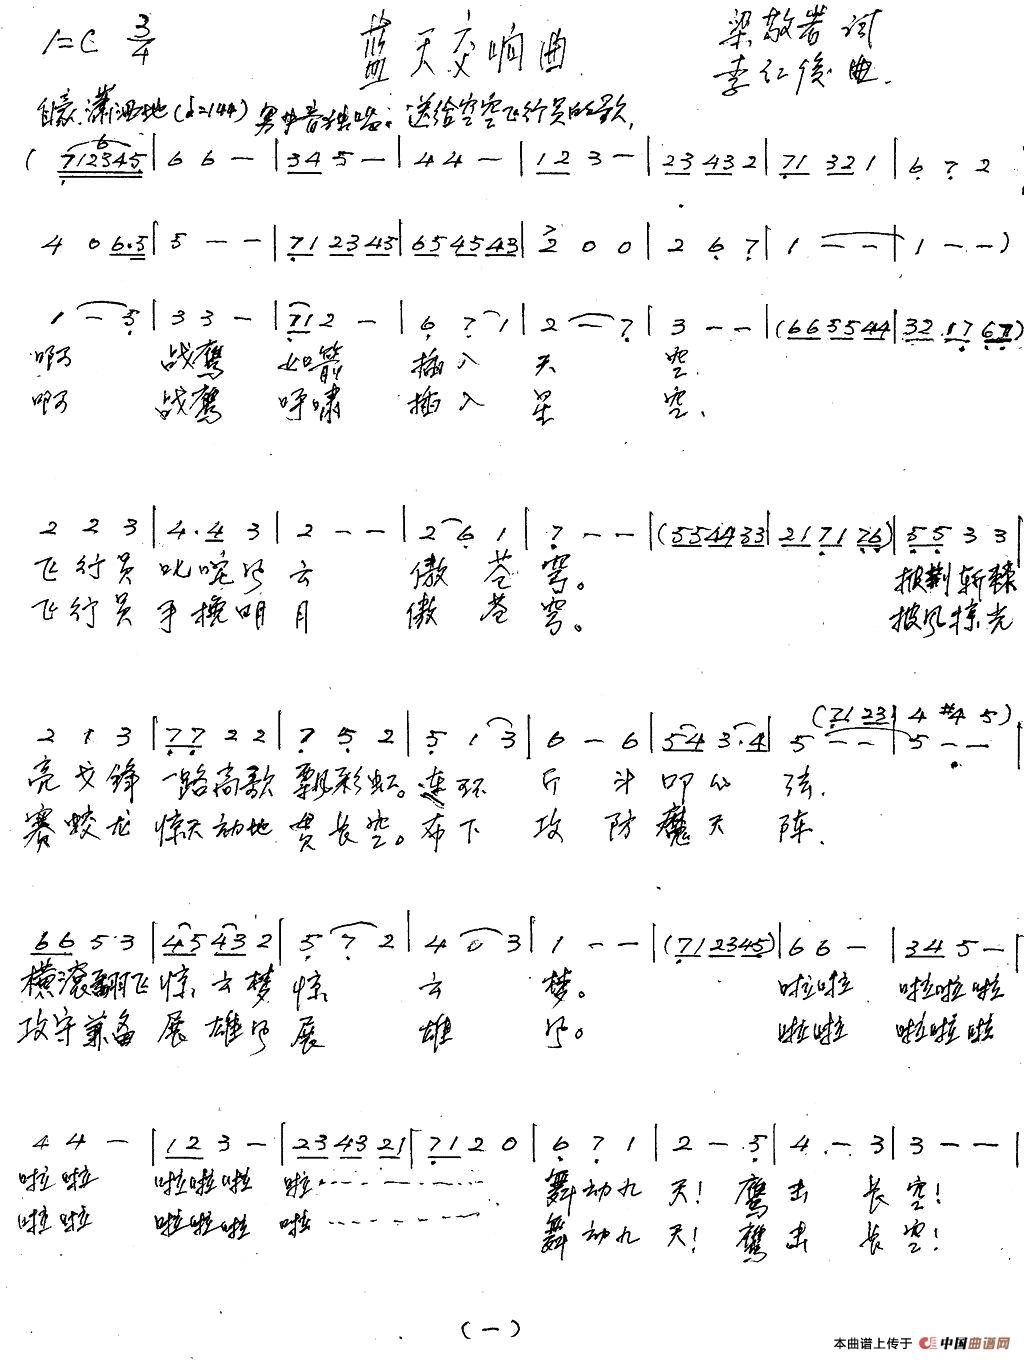 1=C 3/4 蓝天交响曲 梁敬岩 词
李红俊 曲.
自豪、潇洒地 (♩=144) 男中音独唱: 送给空军飞行员的歌
( 712345 | 6 6 — | 34 5 — | 4 4 — | 12 3 — | 23 43 2 | 71 32 1 | 6 7 2 |
4 0 6.5 | 5 — — | 71 23 45 | 65 45 43 | 2 0 0 | 2 6 7 | 1 — — | 1 — — )
1 — 5 | 3 3 — | 71 2 — | 6 7 1 | 2 — 7 | 3 — — | (66 55 44 | 32 17 67)
啊 战鹰 如箭 插入 天 空.
啊 战鹰 呼啸 插入 星 空.
2 2 3 | 4. 4 3 | 2 — — | 2 6 1 | 7 — — | (55 44 33 | 21 71 76) | 55 3 3 |
飞行员 叱咤风云 傲苍穹。 披荆斩棘
飞行员 手挽明月 傲苍穹。 披风惊光
(71 23 | 4 #4 5)
2 1 3 | 77 2 2 | 7 5 2 | 5 1 3 | 6 — 6 | 54 3.4 | 5 — — | 5 — — |
亮戈锋 一路高歌 飘彩虹。连环 斤 斗 叩心 弦.
赛蛟龙 惊天动地 贯长空。布下 攻 防 魔天 阵.
66 5 3 | 45 43 2 | 5 7 2 | 4 0 3 | 1 — — | (71 23 45) | 6 6 — | 34 5 — |
横滚翻飞 惊云梦 惊 云 梦。 啦啦 啦啦啦
攻守兼备 展雄风 展 雄 风。 啦啦 啦啦啦
4 4 — | 12 3 — | 23 43 21 | 71 2 0 | 6 7 1 | 2 — 5 | 4 . — 3 | 3 — — |
啦啦 啦啦啦 啦…… 舞动九 天! 鹰击 长空!
啦啦 啦啦啦 啦…… 舞动九 天! 鹰击 长空!
(一)
本曲谱上传于 中国曲谱网